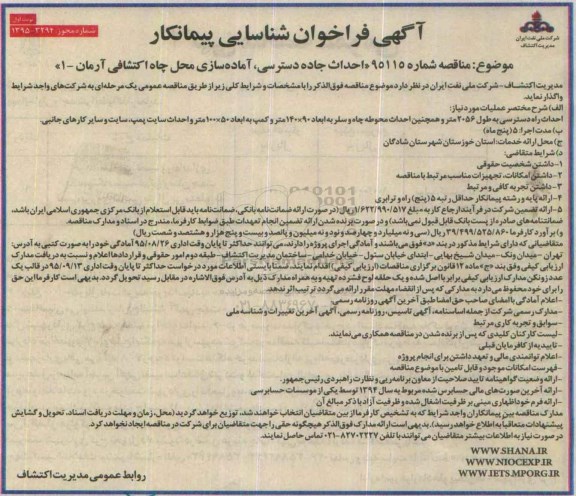 نوبت اول
شماره مجوز: ۱۳۹۵-۳۲۹۴
شرکت ملی نفت ایران
مدیریت اکتشاف
آگهی فراخوان شناسایی پیمانکار
موضوع: مناقصه شماره ۹۵۱۱۵ «احداث جاده دسترسی، آماده‌سازی محل چاه اکتشافی آرمان -۱»
مدیریت اکتشاف - شرکت ملی نفت ایران در نظر دارد موضوع مناقصه فوق‌الذکر را با مشخصات و شرایط کلی زیر از طریق مناقصه عمومی یک مرحله‌ای به شرکت‌های واجد شرایط
واگذار نماید.
الف) شرح مختصر عملیات مورد نیاز:
احداث راه دسترسی به طول ۲۰۵۶ متر و همچنین احداث محوطه چاه و سفر به ابعاد ۹۰×۱۴۰ متر و کمپ به ابعاد ۵۰×۱۰۰ متر و احداث سایت پمپ، سایت و سایر کارهای جانبی.
ب) مدت اجرا: ۵ (پنج ماه)
ج) محل ارائه خدمات: استان خوزستان شهرستان شادگان
د) شرایط متقاضی:
۱- داشتن شخصیت حقوقی
۲- داشتن امکانات، تجهیزات مناسب مرتبط با مناقصه
۳- داشتن تجربه کافی و مرتبط
۴- ارائه پایه و رشته پیمانکار حداقل رتبه ۵ (پنج) راه و ترابری
۵- ارائه تضمین شرکت در فرآیند ارجاع کار به مبلغ ۱/۶۲۲/۹۹۰/۵۱۷ ریال (در صورت ارائه ضمانت‌نامه بانکی، ضمانت‌نامه باید قابل استعلام از بانک مرکزی جمهوری اسلامی ایران باشد،
ضمانتنامه‌های صادره از پست بانک قابل قبول نمی‌باشد) و در صورت برنده شدن ارائه تضمین انجام تعهدات طبق ضوابط کارفرما، مندرج در اسناد و مدارک مناقصه.
و) برآورد کارفرما ۳۹/۴۹۹/۵۲۵/۸۶۰ ریال (سی و نه میلیارد و چهارصد و نود و نه میلیون و پانصد و بیست و پنج هزار و هشتصد و شصت ریال)
متقاضیانی که دارای شرایط مذکور در بند «د» فوق می‌باشند و آمادگی اجرای پروژه را دارند، می‌توانند حداکثر تا پایان وقت اداری ۹۵/۰۸/۲۶ آمادگی خود را به صورت کتبی به آدرس:
تهران - میدان ونک - میدان شیخ بهایی - ابتدای خیابان سئول - خیابان خدامی - ساختمان مدیریت اکتشاف - طبقه دوم امور حقوقی و قراردادها اعلام و نسبت به دریافت مدارک
ارزیابی کیفی وفق بند «ج» ماده ۱۲ قانون برگزاری مناقصات (ارزیابی کیفی) اقدام نمایند، ضمنا بایستی اطلاعات مورد درخواست حداکثر تا پایان وقت اداری ۹۵/۰۹/۱۳ در قالب یک
عدد زونکن مدارک ارزیابی کیفی برابر با اصل شده و یک حلقه لوح فشرده تهیه و به همراه مدارک ذیل به آدرس فوق الاشاره در مقابل رسید تحویل گردد. بدیهی است کارفرما این حق
را برای خود محفوظ می‌دارد به مدارکی که پس از انقضاء مهلت مقرر ارائه می‌گردد ترتیب اثر ندهد.
- اعلام آمادگی با امضای صاحب حق امضا طبق آخرین آگهی روزنامه رسمی
- مدارک رسمی شرکت از جمله اساسنامه، آگهی تاسیس، روزنامه رسمی، آگهی آخرین تغییرات و شناسه ملی
- سوابق و تجربه کاری مرتبط
- لیست کارکنان کلیدی که پس از برنده شدن در مناقصه همکاری می‌نمایند.
- تاییدیه از کارفرمایان قبلی
- اعلام توانمندی مالی و تعهد داشتن برای انجام پروژه
- فهرست امکانات موجود و قابل تامین با موضوع مناقصه
- ارائه وضعیت گواهینامه تایید صلاحیت از معاون برنامه‌ریزی و نظارت راهبردی رئیس جمهور.
- ارائه آخرین صورت‌های مالی حسابرسی شده مربوط به سال ۱۳۹۴ توسط یکی از موسسات حسابرسی
- ارائه فرم خوداظهاری مبنی بر ظرفیت اشغال شده و ظرفیت آزاد با ذکر مبالغ آن
مدارک مناقصه بین پیمانکاران واجد شرایط که به تشخیص کارفرما از بین متقاضیان انتخاب خواهند شد، توزیع خواهد گردید (محل، زمان و مهلت دریافت اسناد، تحویل و گشایش
پیشنهادات متعاقبا به اطلاع خواهد رسید). بدیهی است ارائه مدارک فوق‌الذکر هیچگونه حقی را جهت متقاضیان برای شرکت در مناقصه ایجاد نخواهد کرد.
در صورت نیاز به اطلاعات بیشتر متقاضیان می‌توانند با تلفن ۸۲۷۰۲۲۳۷-۰۲۱ تماس حاصل نمایند.
WWW.SHANA.IR
WWW.NIOCEXP.IR
WWW.IETS.MPORG.IR
روابط عمومی مدیریت اکتشاف